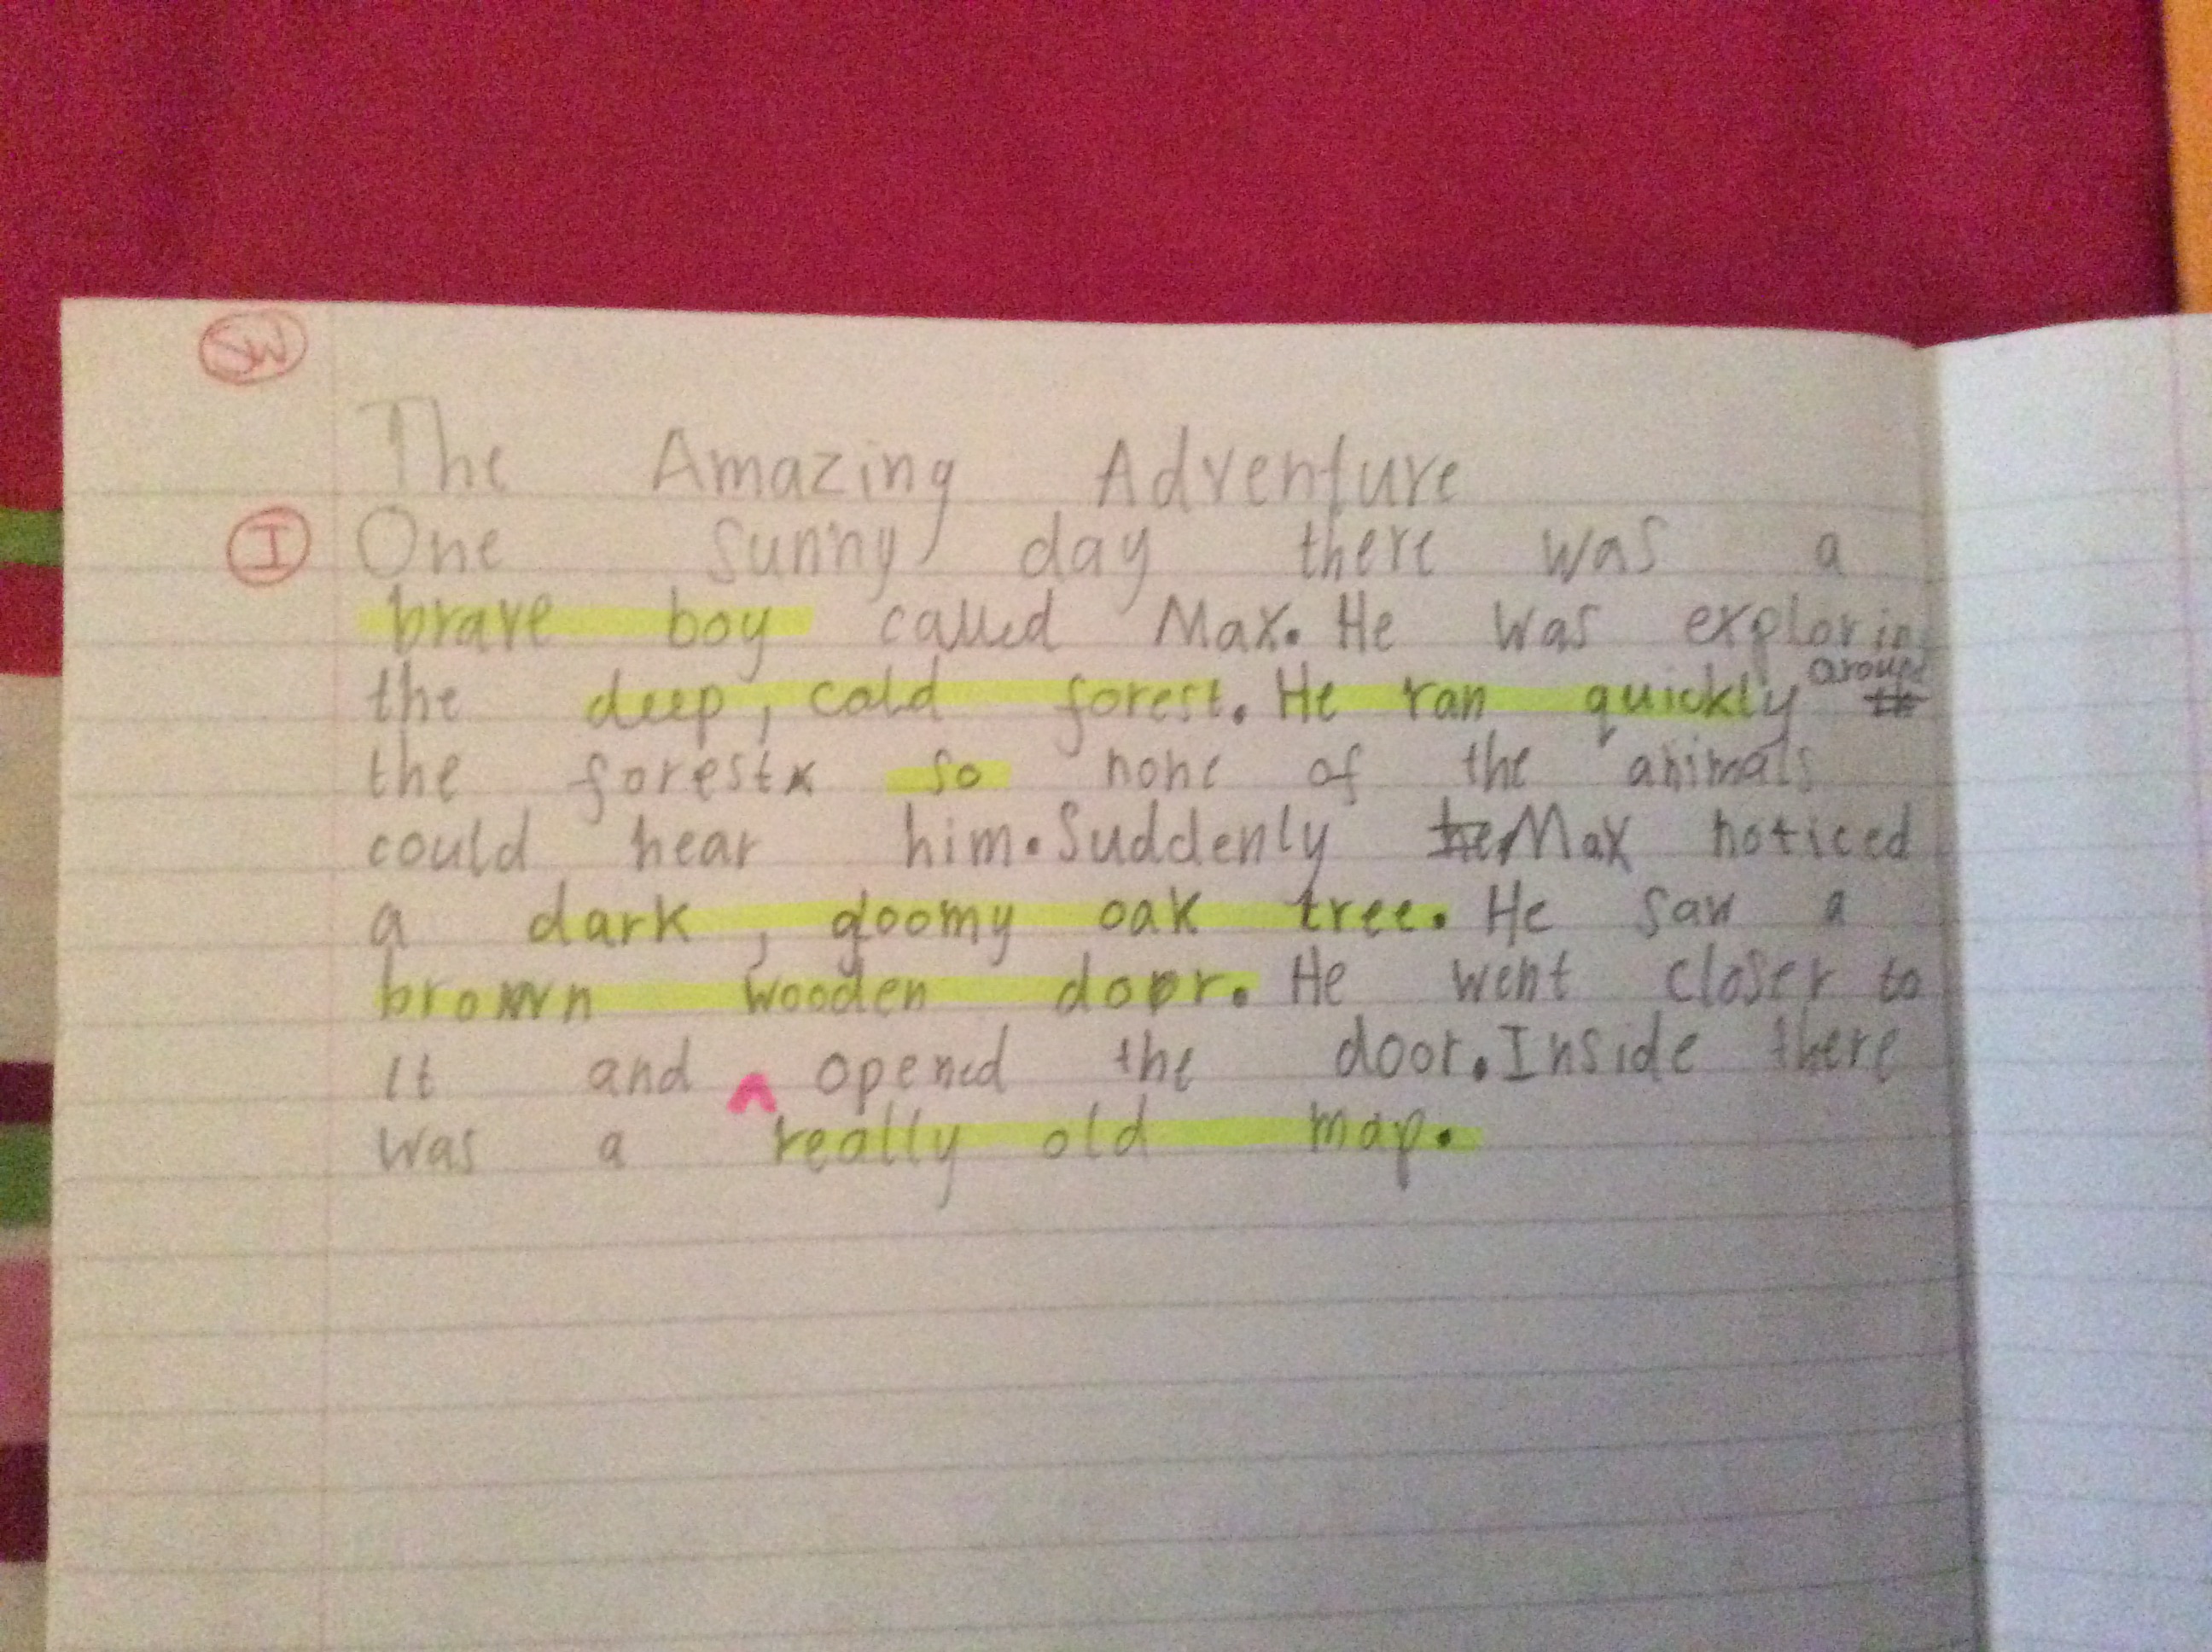 SW
The Amazing Adventure
I One sunny day there was a
brave boy called Max. He was explorin
the deep, cold forest. He ran quickly around
the forest so none of the animals
could hear him. Suddenly he Max noticed
a dark, gloomy oak tree. He saw a
brown wooden door. He went closer to
it and ^ opened the door. Inside there
was a really old map.